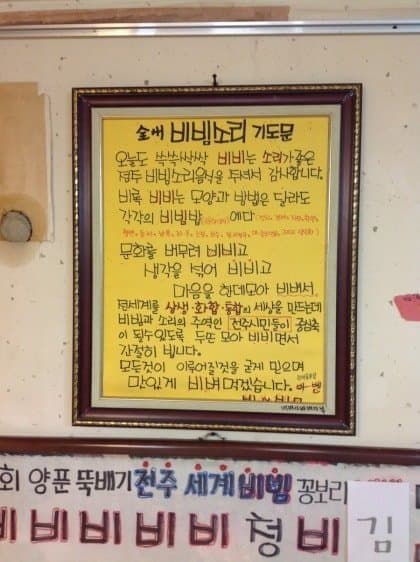 비빔소리 기도문
오늘도 쓱쓱싹싹 비비는 소리가 좋은
전주 비빔소리음식을 주셔서 감사합니다.
비록 비비는 모양과 방법은 달라도
각각의 비빔밥 에다
문화를 버무려 비비고
생각을 넣어 비비고
마음을 한데모아 비벼서,
전세계를 상생·화합·통합의 세상을 만드는데
비빔과 소리의 주역인 전주시민들이 중심축
이 될수있도록 두손 모아 비비면서
간절히 빕니다.
모든것이 이루어질것을 굳게 믿으며
맛있게 비벼먹겠습니다. 아멘
회 양푼 뚝배기 전주 세계비빔 꽁보리
비비비비비 청 비 김